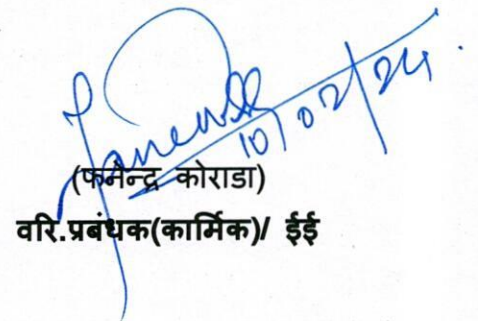 10/02/24.
(फनेन्द्र कोराडा)
वरि.प्रबंधक(कार्मिक)/ ईई